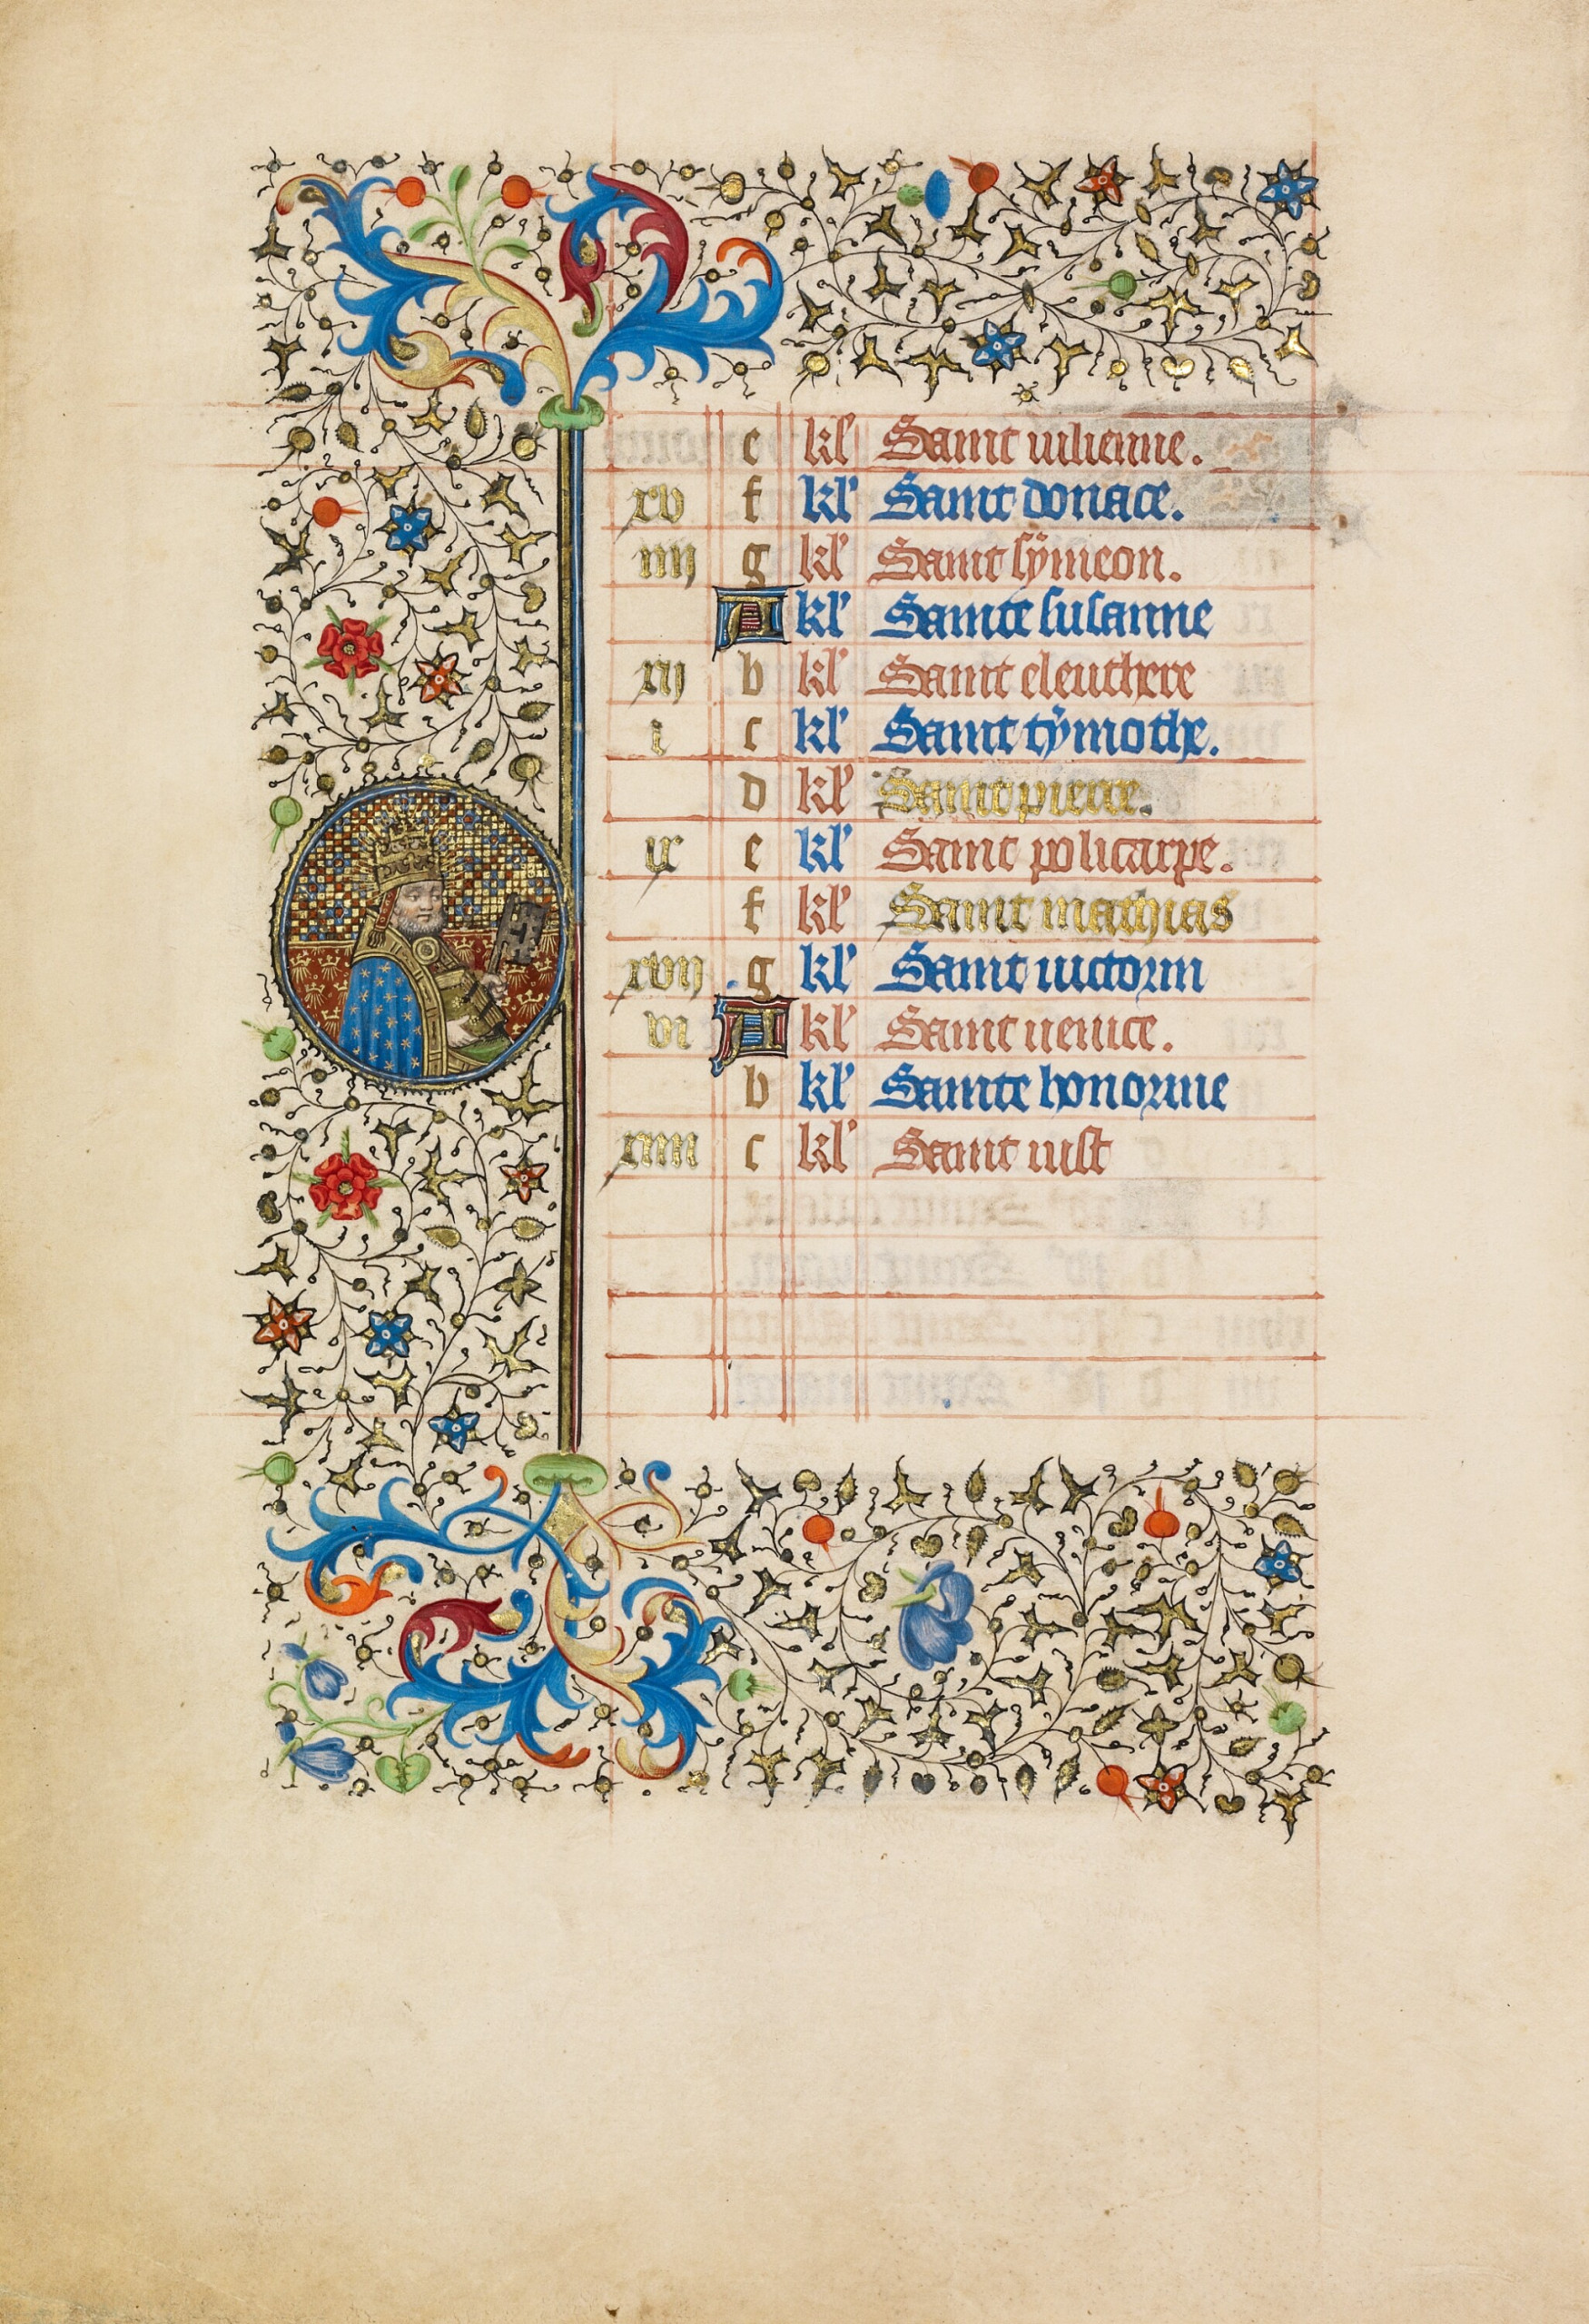 e kl' Saint iulienne.
xv f kl' Saint donace.
iiij g kl' Saint symeon.
A kl' Sainte susanne
xij b kl' Saint eleuthere
i c kl' Saint tymothe.
d kl' Saint pierre.
ix e kl' Saint policarpe.
f kl' Saint mathias
xvij g kl' Saint victorin
vi A kl' Saint venice.
b kl' Sainte honorine
xiiij c kl' Saint iust